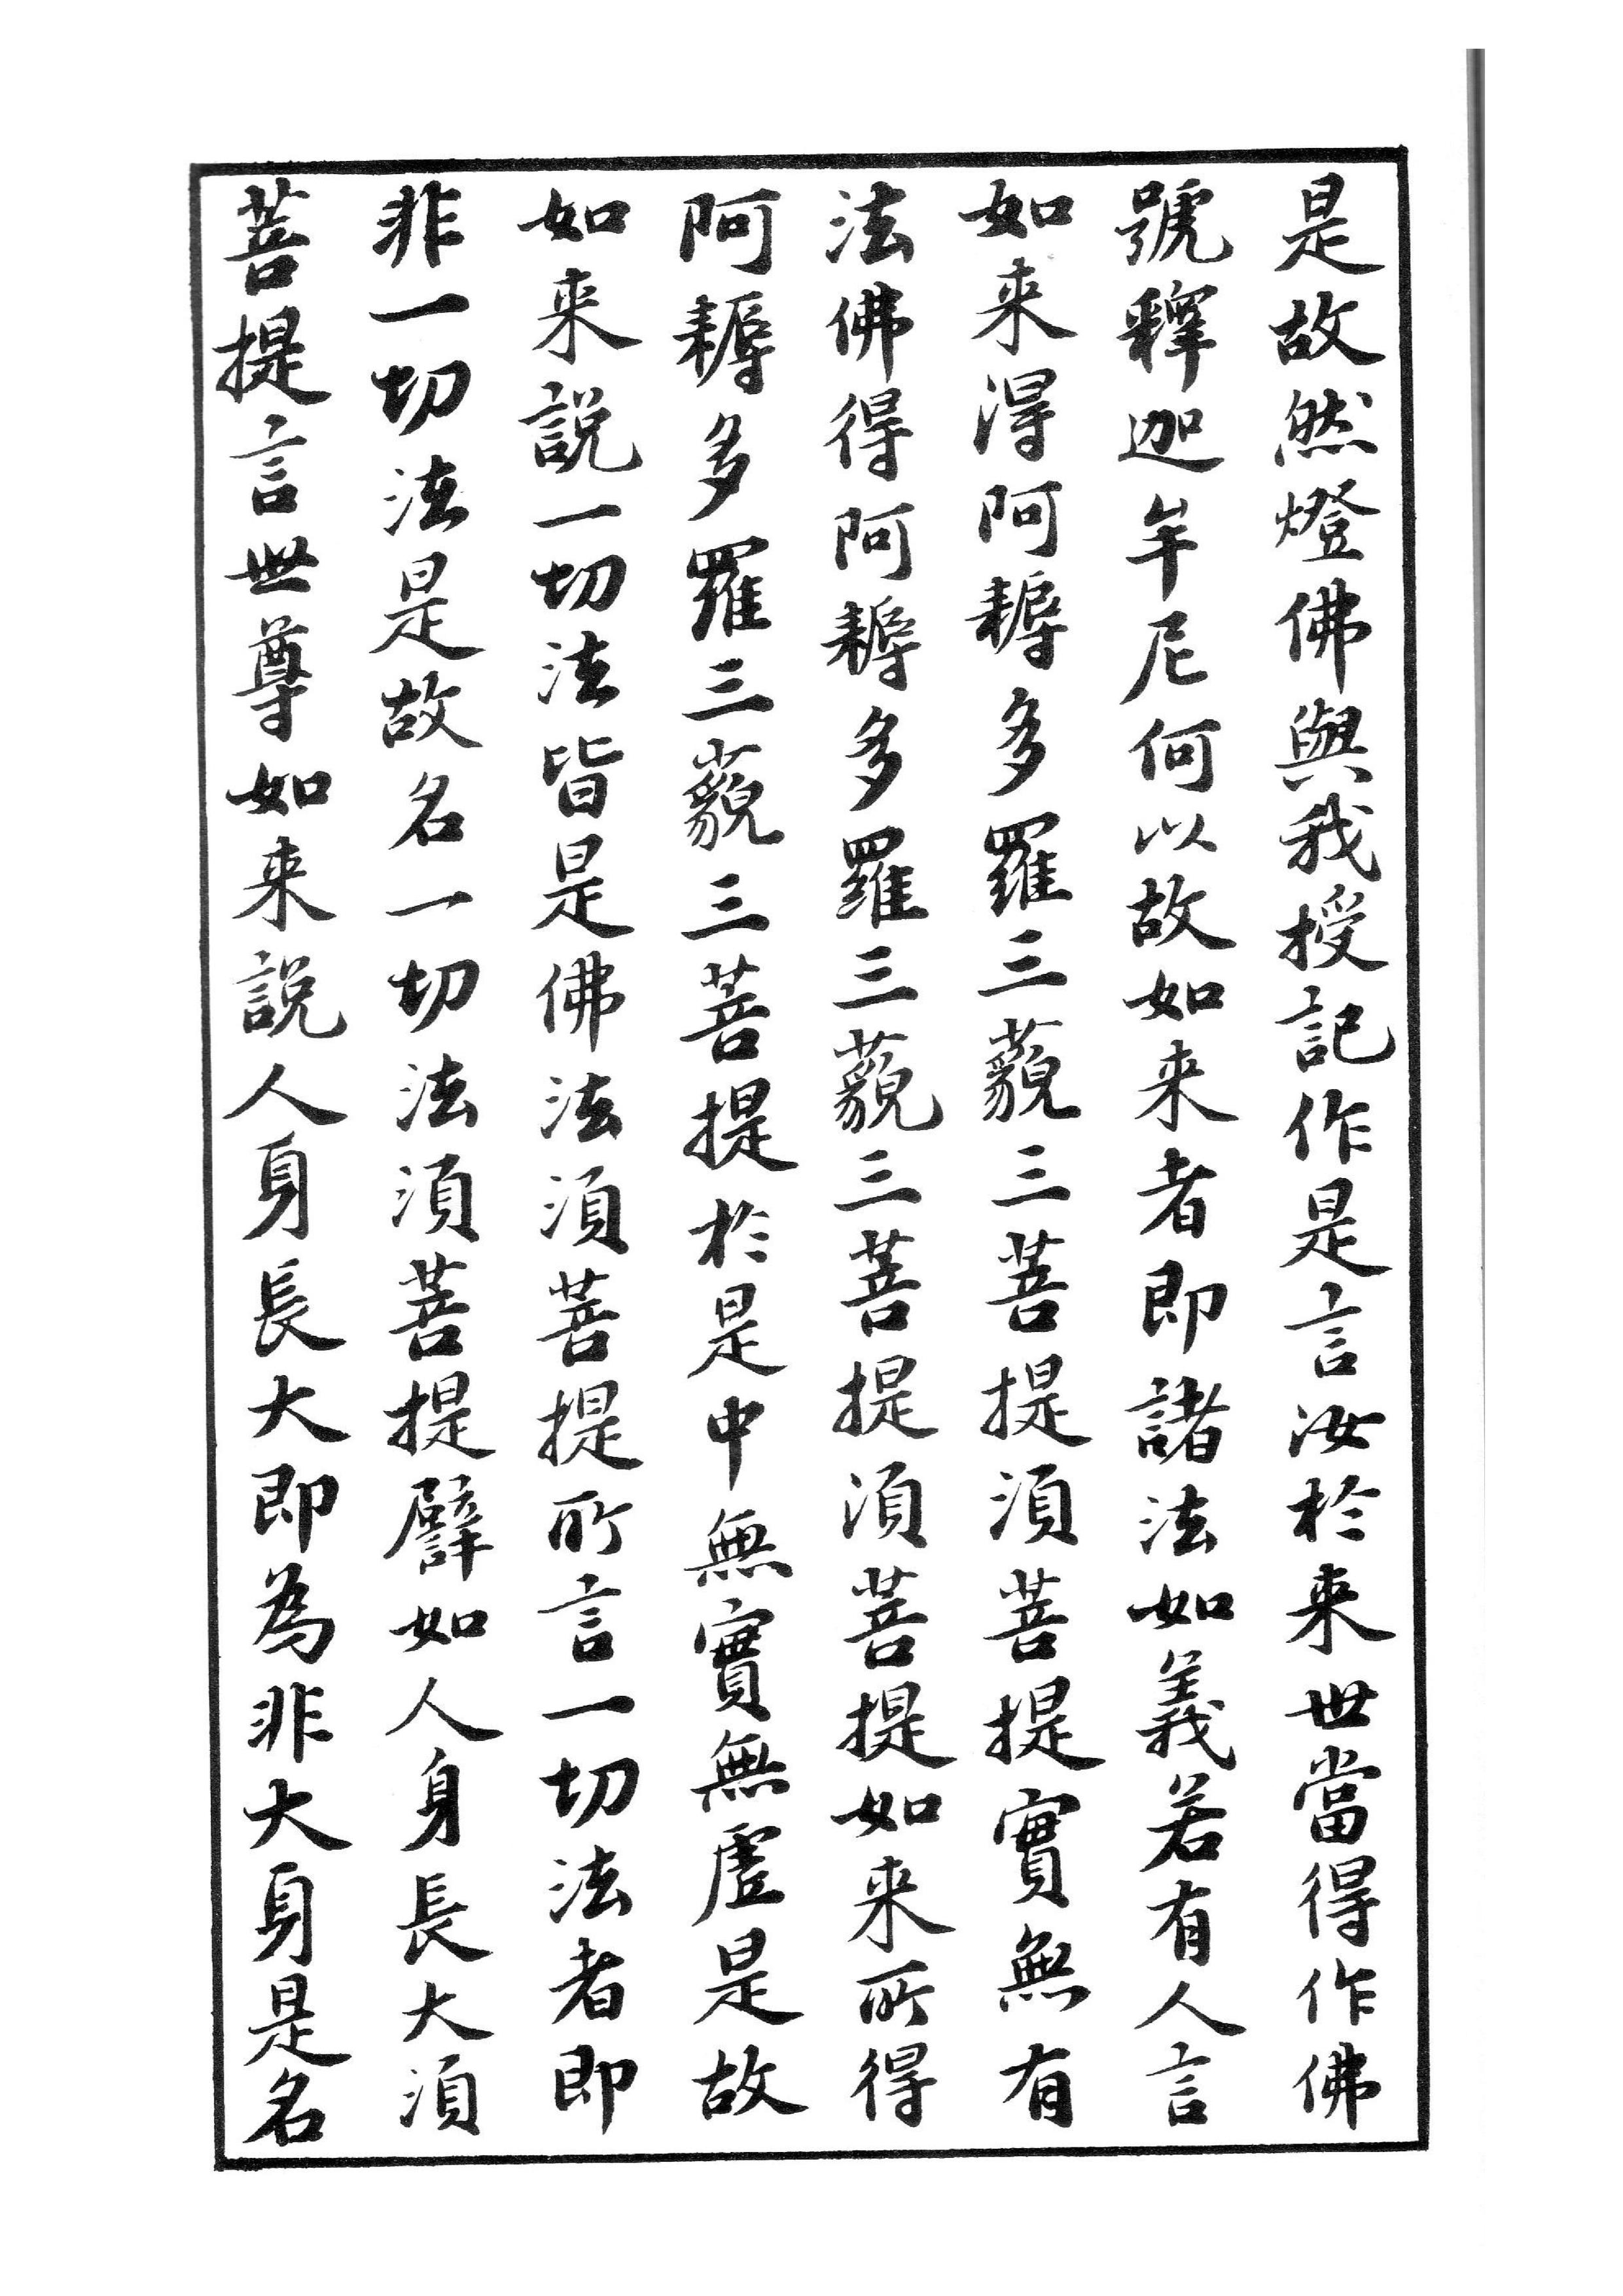 是故然燈佛與我授記作是言汝於来世當得作佛
號釋迦牟尼何以故如来者即諸法如義若有人言
如来得阿耨多羅三藐三菩提湏菩提實無有
法佛得阿耨多羅三藐三菩提湏菩提如来所得
阿耨多羅三藐三菩提於是中無實無虛是故
如来説一切法皆是佛法湏菩提所言一切法者即
非一切法是故名一切法湏菩提譬如人身長大湏
菩提言世尊如来説人身長大即為非大身是名